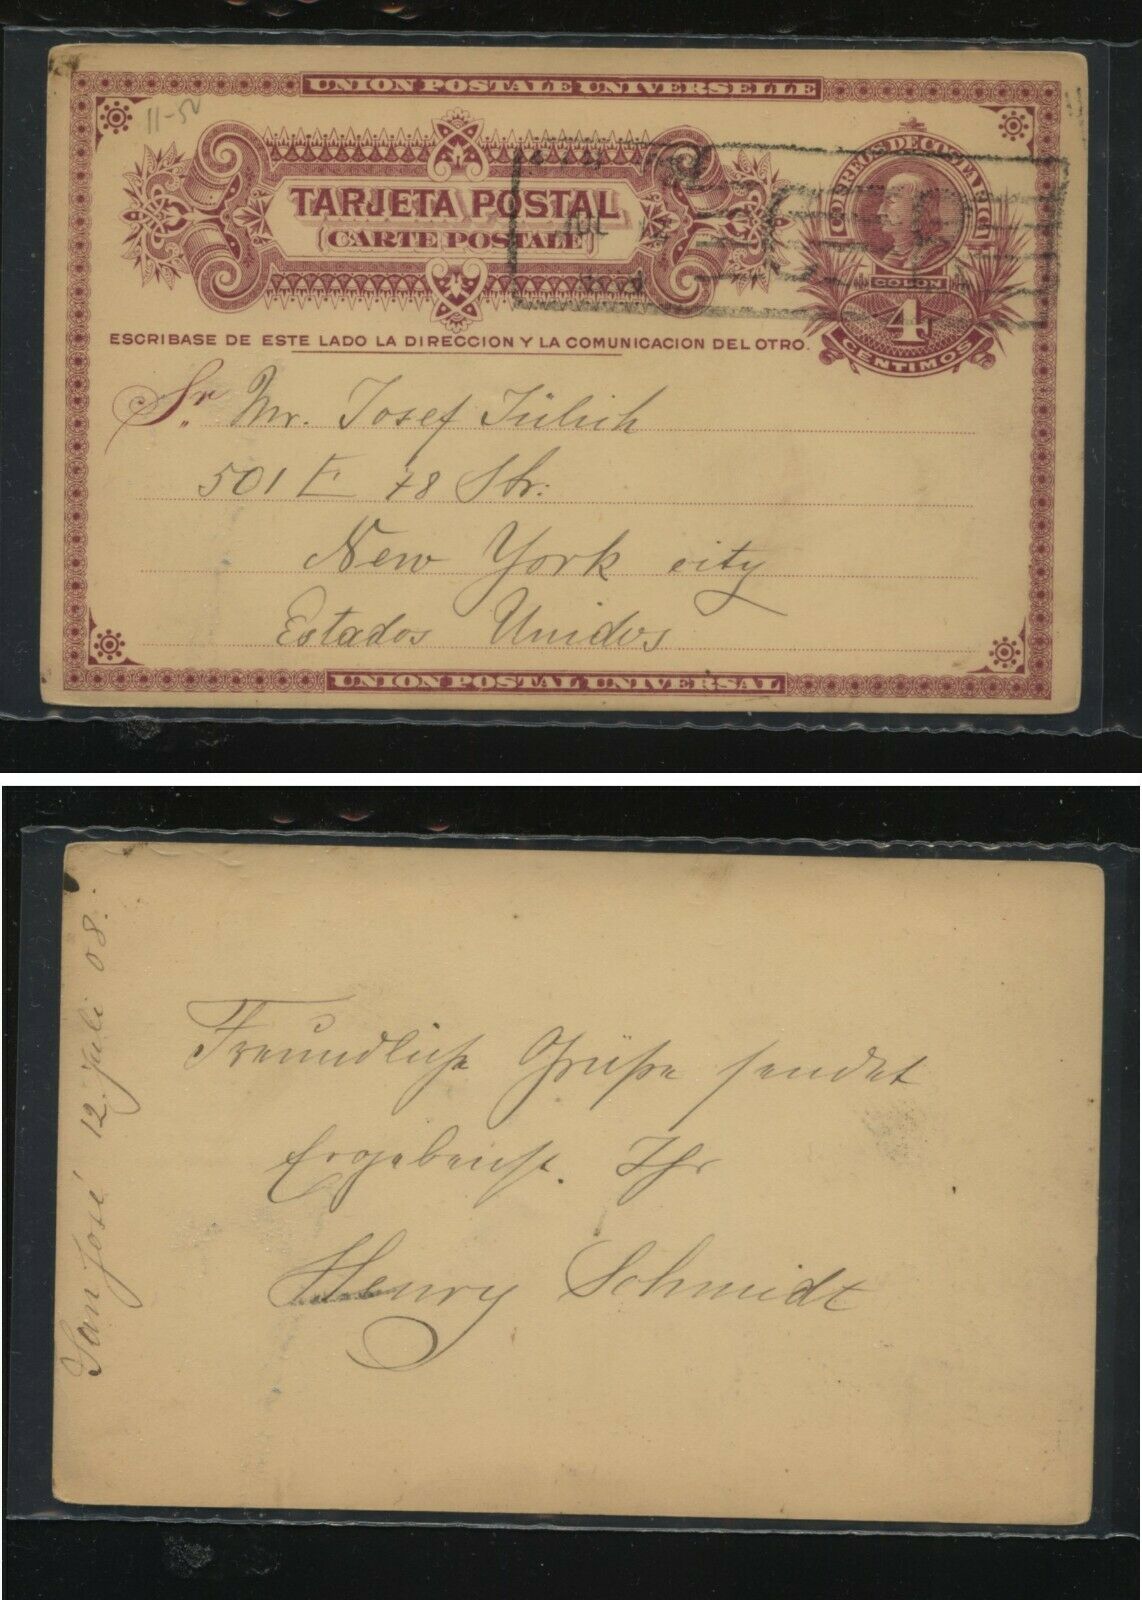 UNION POSTALE UNIVERSELLE
11-50
TARJETA POSTAL
(CARTE POSTALE)
CORREOS DE COSTA RICA
COLON
4
CENTIMOS
JUL
ESCRIBASE DE ESTE LADO LA DIRECCION Y LA COMUNICACION DEL OTRO.
Sr. Mr. Josef Jülich
501 E 78 Str:
New York city
Estados Unidos
UNION POSTAL UNIVERSAL
San José 12. Juli 08.
Freundliche Grüße sendet
Ergebenst. Ihr
Henry Schmidt